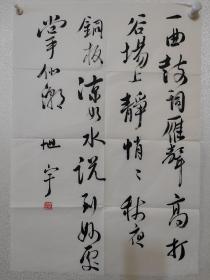 一曲鼓词雁声高打
谷场上静悄〻秋夜
铜板凉如水说到妙处
掌如潮 旭宇